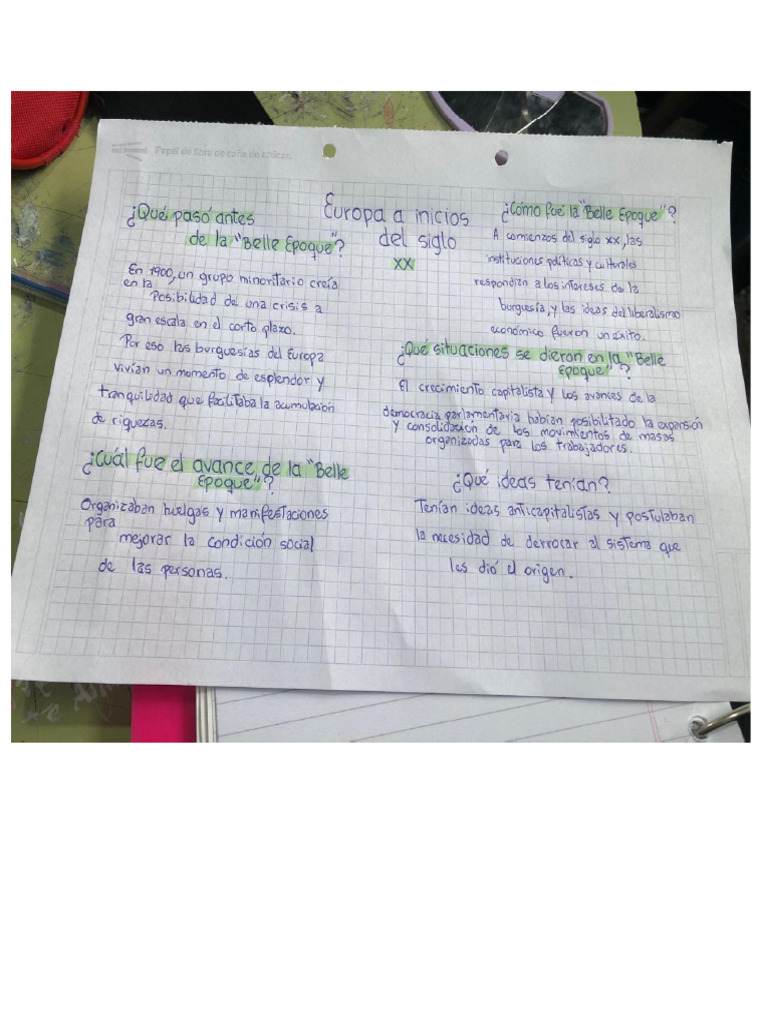 Papel de fibra de caña de azúcar.
Europa a inicios
del siglo
XX
¿Qué pasó antes
de la "Belle Epoque"?
En 1900, un grupo minoritario creía
en la
Posibilidad de una crisis a
gran escala en el corto plazo.
Por eso las burguesías del Europa
vivían un momento de esplendor y
tranquilidad que facilitaba la acumulación
de riquezas.
¿Cuál fue el avance de la "Belle
Epoque"?
Organizaban huelgas y manifestaciones
para
mejorar la condición social
de las personas.
¿Cómo fué la "Belle Epoque"?
A comienzos del siglo xx, las
instituciones políticas y culturales
respondian a los intereses de la
burguesía, y las ideas del liberalismo
económico fueron un éxito.
¿Qué situaciones se dieron en la "Belle
Epoque"?
El crecimiento capitalista y los avances de la
democracia parlamentaria habían posibilitado la expansión
y consolidación de los movimientos de masas
organizadas para los trabajadores.
¿Qué ideas tenían?
Tenían ideas anticapitalistas y postulaban
la necesidad de derrocar al sistema que
les dió el origen.